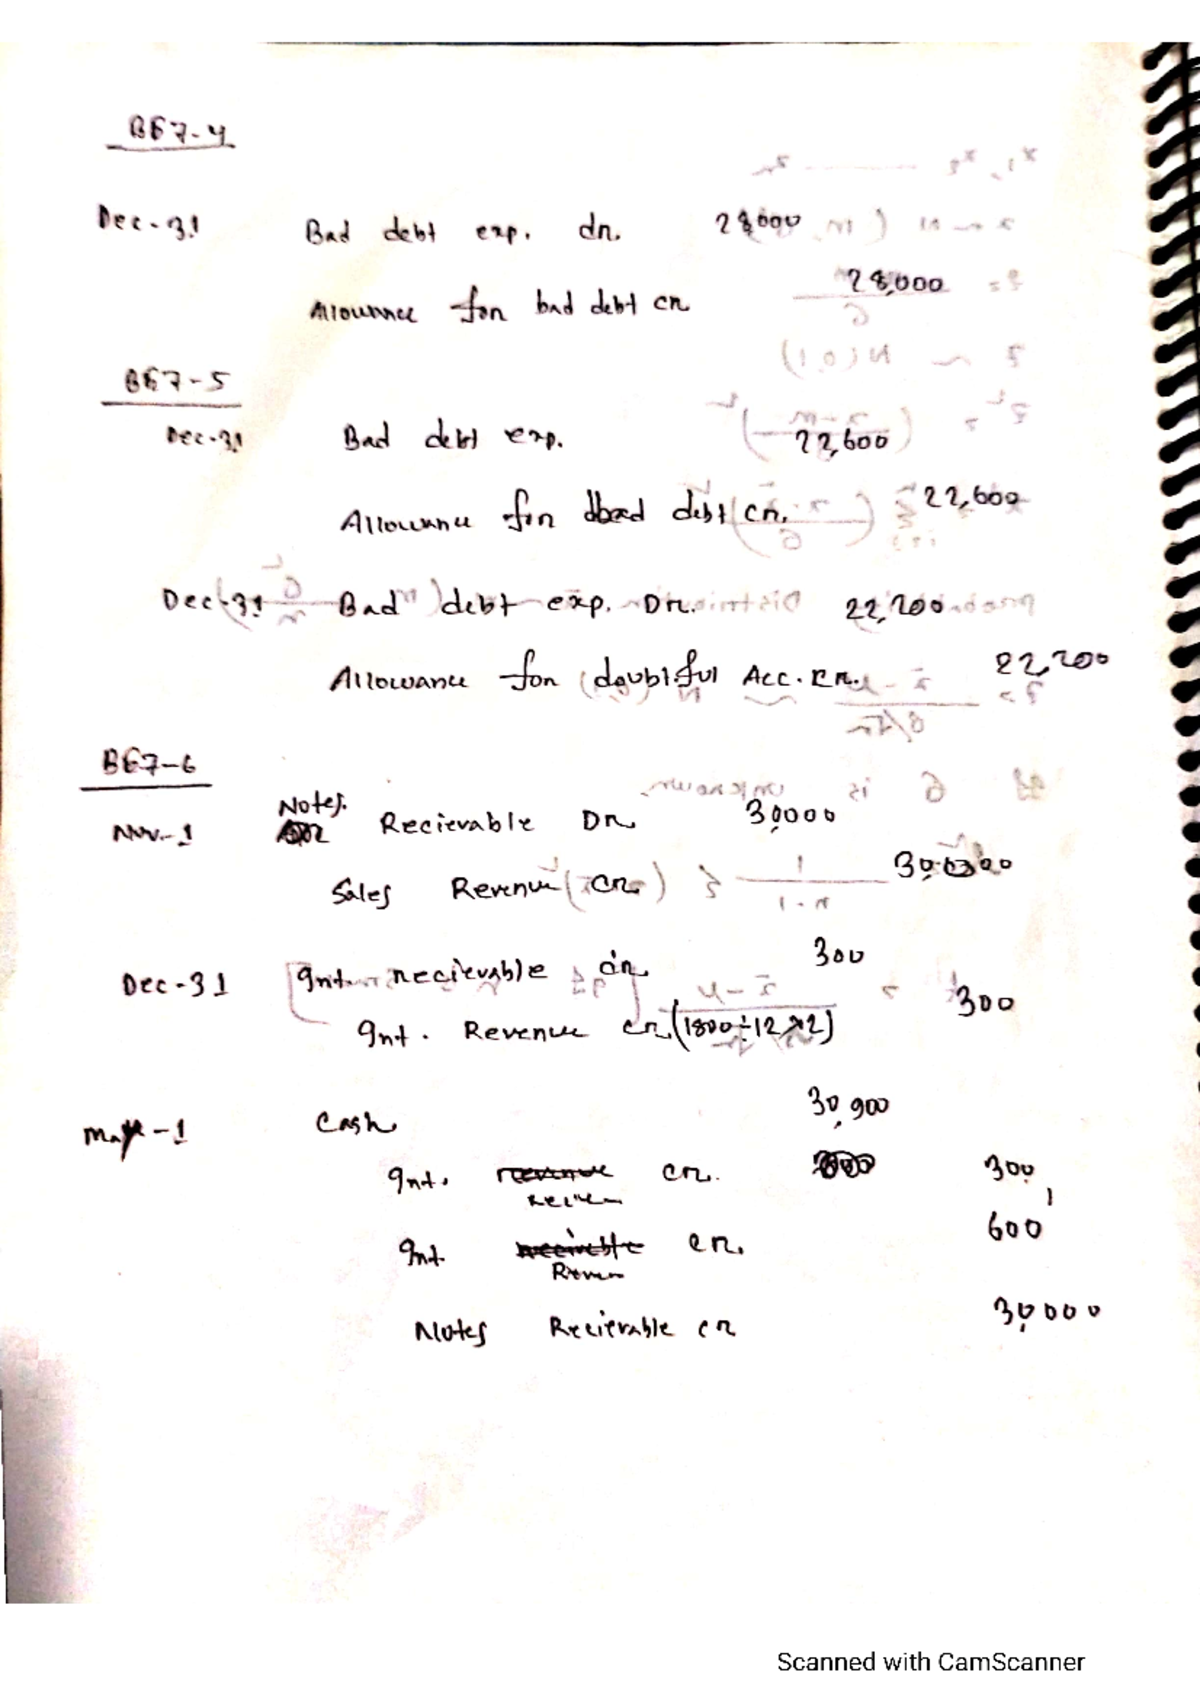 BE7-4
Dec-31 Bad debt exp. dr. 28,000
Allowance for bad debt cr 28,000
BE7-5
Dec-31 Bad debt exp. 22,600
Allowance for bad debt cr. 22,600
Dec-31 Bad debt exp. Dr. 22,200
Allowance for doubtful Acc. cr. 22,200
BE7-6
Nov-1 Notes. Recievable Dr 30,000
Sales Revenue cr. 30,000
Dec-31 Int. recievable dr 300
Int. Revenue cr (1800÷12×2) 300
May-1 Cash 30,900
Int. cr. 300
Int. cr. 600
Notes Recievable cr 30,000
Scanned with CamScanner